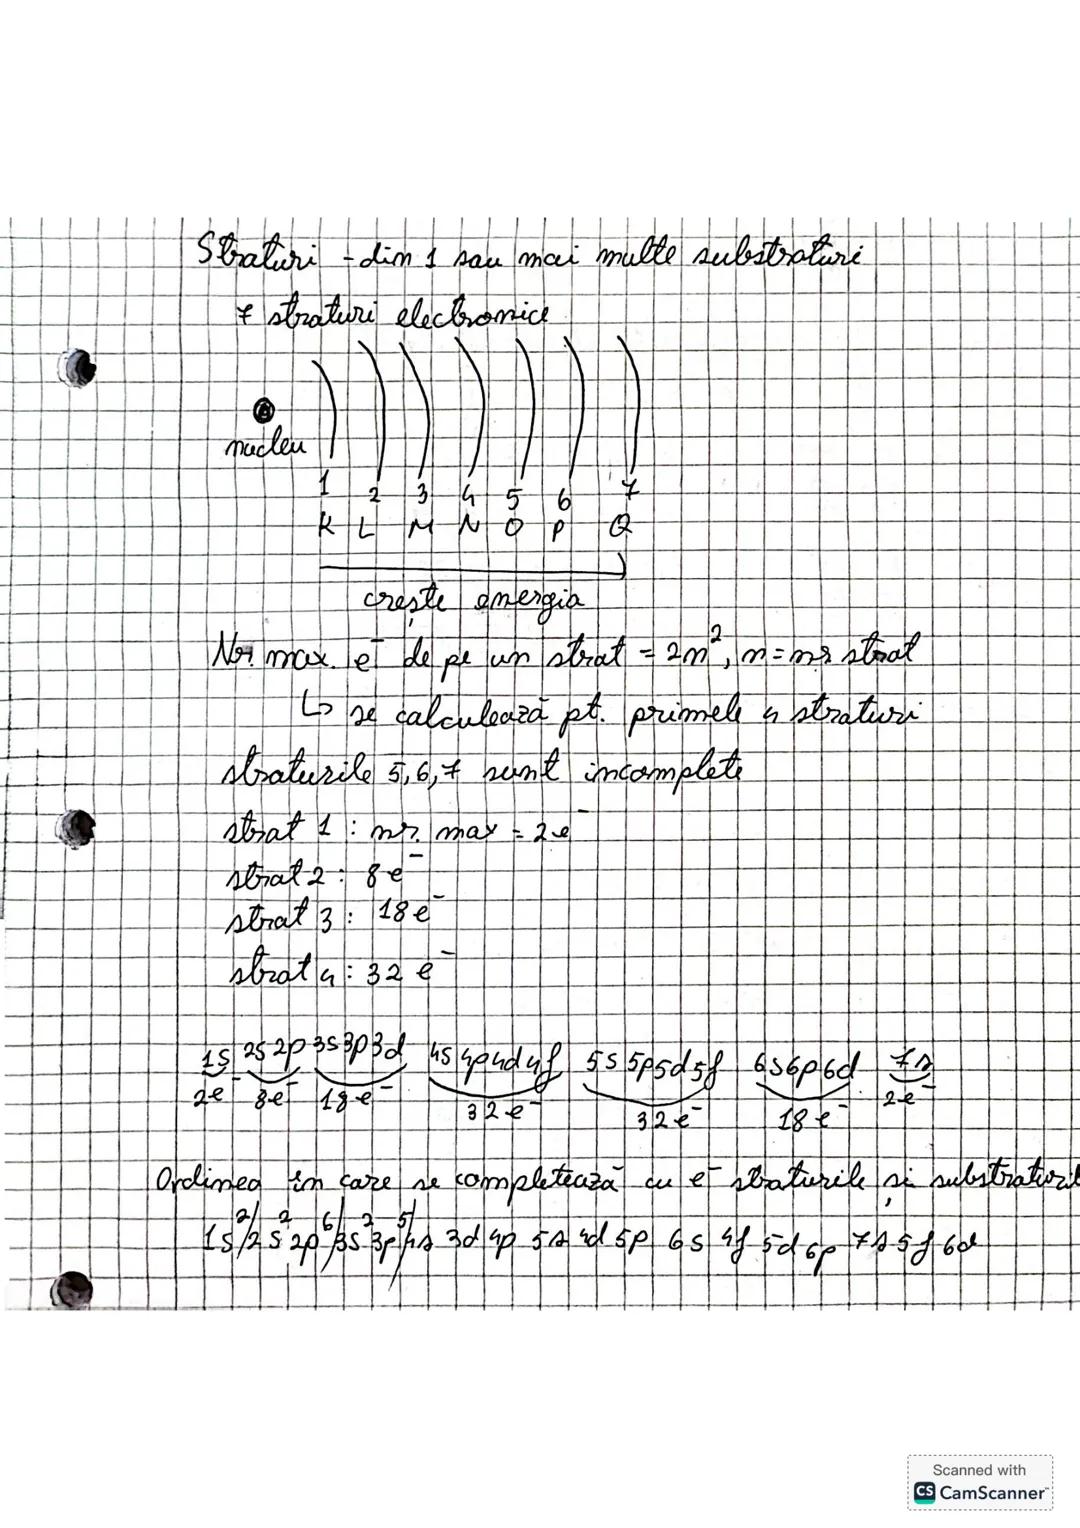 Straturi - din 1 sau mai multe substraturi
7 straturi electronice
nucleu
1 2 3 4 5 6 7
K L M N O P Q
crește energia
Nr. max. e⁻ de pe un strat = 2n², n = nr strat
↳ se calculează pt. primele 4 straturi
straturile 5,6,7 sunt incomplete
strat 1 : nr. max = 2e⁻
strat 2 : 8e⁻
strat 3 : 18e⁻
strat 4 : 32e⁻
1s 2s 2p 3s 3p 3d 4s 4p 4d 4f 5s 5p 5d 5f 6s 6p 6d 7s
2e⁻ 8e⁻ 18e⁻ 32e⁻ 32e⁻ 18e⁻ 2e⁻
Ordinea în care se completează cu e⁻ straturile și substraturil
1s²/2s² 2p⁶/3s² 3p⁵/4s 3d 4p 5s 4d 5p 6s 4f 5d 6p 7s 5f 6d
Scanned with
CS CamScanner